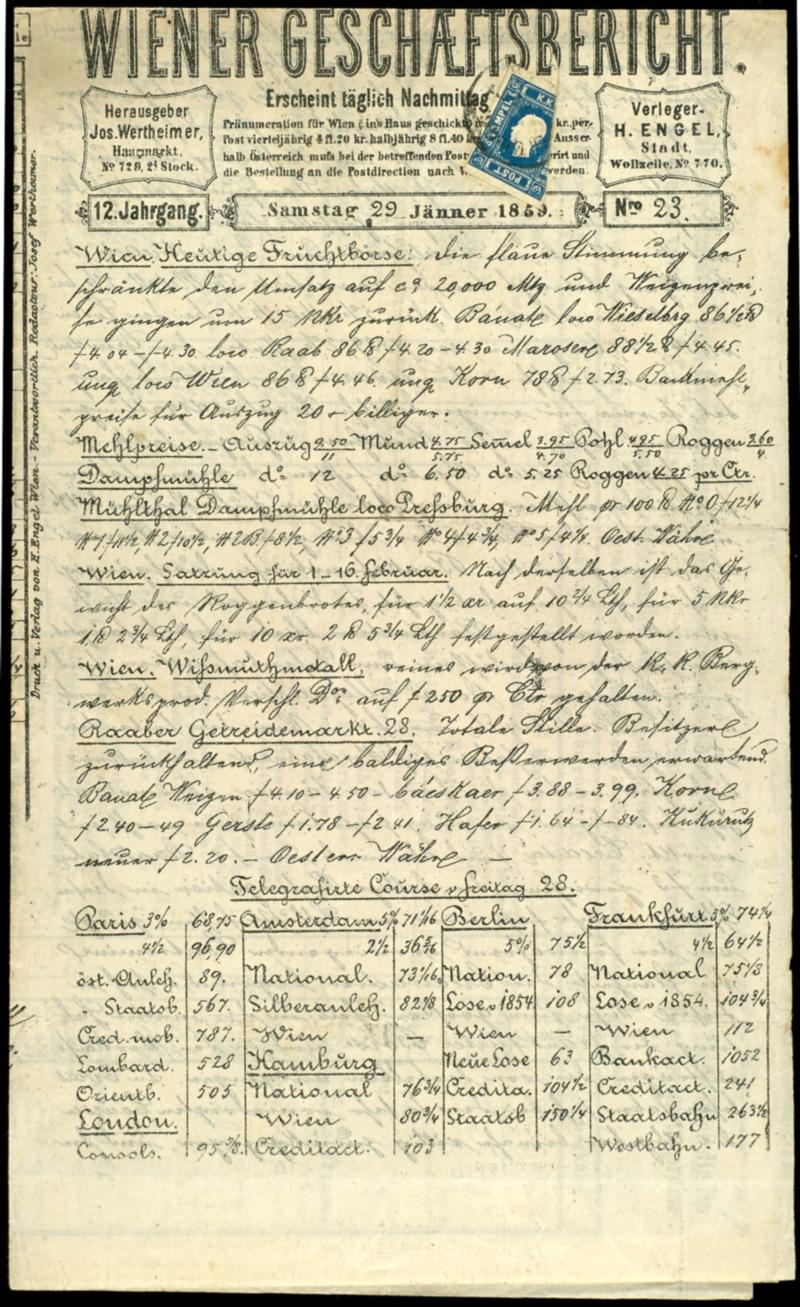 WIENER GESCHÆFTSBERICHT.
Erscheint täglich Nachmittag
Herausgeber
Jos. Wertheimer,
Haarmarkt,
No 729, 2t Stock.
Pränumeration für Wien ins Haus geschickt kr. per
Post vierteljährig 4 fl. 20 kr. halbjährig 8 fl. 40 Ausser-
halb Österreich muss bei der betreffenden Post und
die Bestellung an die Postdirection nach werden.
K.K.
STEMPEL
POST
Verleger
H. ENGEL,
Stadt,
Wollzeile, No 770.
12. Jahrgang.
Samstag 29 Jänner 1859.
Nro 23.
Druck u. Verlag von H. Engel Wien. Verantwortlich. Redacteur: Josef Wertheimer.
Wien. Heutige Fruchtbörse: die flaue Stimmung be-
schränkte den Umsatz auf ca 20,000 Mtz und Weizenprei-
se gingen um 15 Nkr zurück. Banate loco Wieselbrg 86½ ℔
f 4.04 – f 4.30 loco Raab 86 ℔ f 4.20 – 4.30 Maroser 88½ ℔ f 4.45.
ung loco Wien 86 ℔ f 4.46. ung Korn 78 ℔ f 2.73. Backmehl-
preise für Auszug 20 billiger.
Mehlpreise. – Auszug 9.50/11 Mund 4.75/5.75 Semel 3.95/4.70 Pohl 4.95/5.50 Roggen 3.60/4
Dampfmühle do 12 do 6.50 do 5.25 Roggen 4.25 pr Ctr.
Mühlthal Dampfmühle loco Pressburg. Mehl pr 100 ℔ No 0 f 12¼
No 1 f 11½, No 2 f 10½, No 2B f 8½, No 3 f 5¾ No 4 f 4¾, No 5 f 4¼. Oest. Währ
Wien. Satzung für 1 – 16. Februar. Nach derselben ist das Ge-
wicht des Roggenbrotes, für 1½ xr auf 10¾ Lth, für 5 Nkr
1 ℔ 2¾ Lth, für 10 xr 2 ℔ 5¾ Lth festgestellt worden.
Wien. Wissmuthmetall, reines wird von der K. K. Berg-
werksprod. Verschl. Don auf f 250 pr Ctr gehalten.
Raaber Getreidemarkt. 28. Totale Stille. Besitzer
zurückhaltend, eine baldiges Besserwerden erwartend.
Banate Weizen f 4.10 – 4.50 – bácskaer f 3.88 – 3.99. Korn
f 2.40 – 49 Gerste f 1.78 – f 2.41. Hafer f 1.64 – f – 84. Kukurutz
neuer f 2.20. – Oester Währ –
Telegrafirte Course v freitag 28.
Paris 3% 68,75 Amsterdam 5% 71 1/16 Berlin Frankfurt 5% 74¼
4½ 96,90 2½ 5% 75½ 4½ 64½
öst. Anleh. 89. National. 73 1/16 Nation. 78 National 75 1/8
" Staatsb. 567. Silberanleh. 82 1/8 Lose v 1854 108 Lose v 1854. 104¾
Cred. mob. 787. Wien – Wien – Wien 112
Lombard. 528 Hamburg Neue Lose 63 Bankact. 1052
Orientb. 505 National 76¾ Credita. 104½ Creditact. 241
London. Wien 80¾ Staatsb 150¼ Staatsbahn 263½
Consols. 95 3/8. Creditact. 103 Westbahn. 177